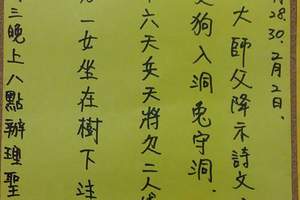 月28.30.2月2日.
大師父降示詩文
狗入洞兔守洞.
六天兵天將欠二人
一女坐在樹下
三晚上八點辦理聖